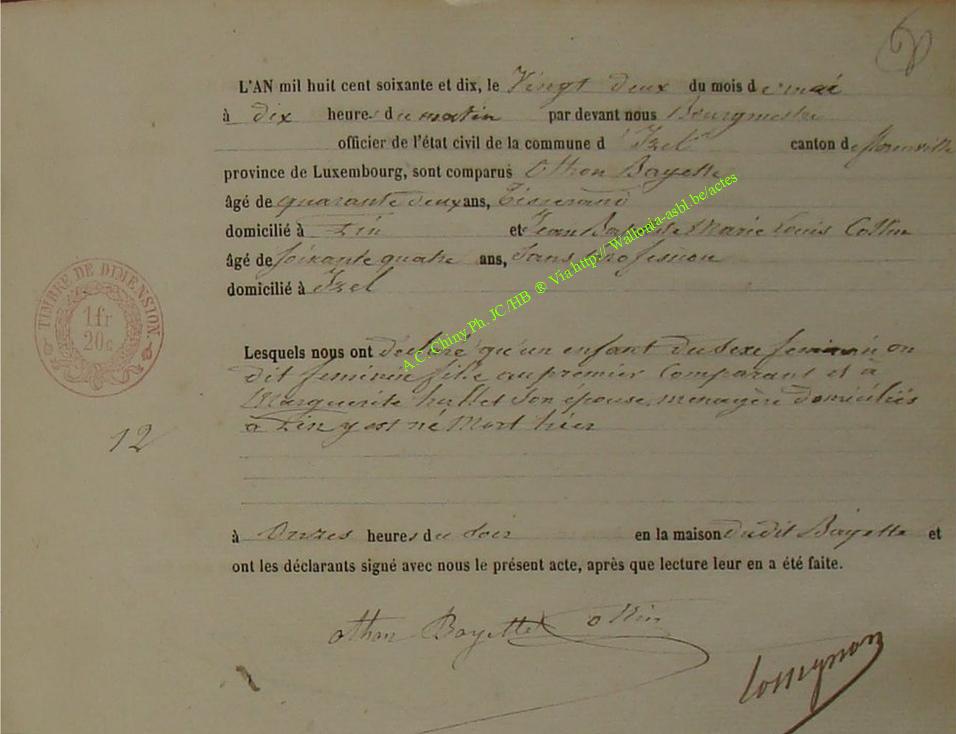 L'AN mil huit cent soixante et dix, le Vingt deux du mois de mai
à dix heures du matin par devant nous Bourgmestre
officier de l'état civil de la commune d'Izel canton de florenville
province de Luxembourg, sont comparus Othon Bayette
âgé de quarante deux ans, Tisserand
domicilié à Pin et Jean Baptiste Marie Louis Collin
âgé de soixante quatre ans, Sans profession
domicilié à Izel
A.C. Chiny Ph. JC /HB ® Via http:// Wallonia-asbl.be/actes
TIMBRE DE DIMENSION.
1fr
20c
Lesquels nous ont déclaré qu'un enfant du sexe feminin on
dit feminin fille au premier Comparant et à
Marguerite son épouse, menagère domiciliés
à Pin y est né Mort hier
12
à Onzes heures du soir en la maison dudit Bayette et
ont les déclarants signé avec nous le présent acte, après que lecture leur en a été faite.
othon Bayette Collin